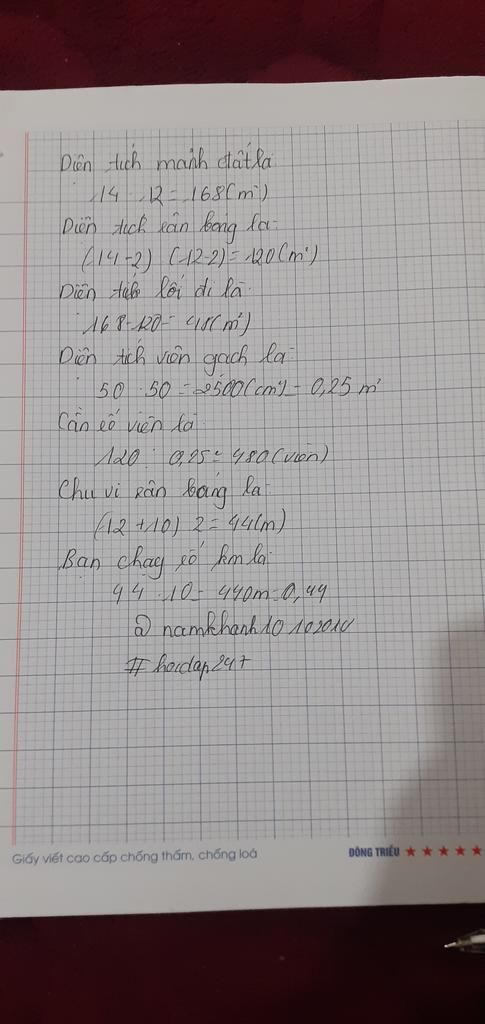 Diện tích mảnh đất là
14 . 12 = 168(m²)
Diện tích sân bóng là:
(14-2) (12-2) = 120(m²)
Diện tích lối đi là:
168-120= 48(m²)
Diện tích viên gạch là:
50 . 50 = 2500(cm²) = 0,25 m²
Cần số viên là
120 : 0,25 = 480(viên)
Chu vi sân bóng là:
(12 +10) 2 = 44(m)
Bạn chạy số km là:
44 . 10 = 440m=0,44
@ namkhanh10 102010
# hoidap247
Giấy viết cao cấp chống thấm, chống loá
ĐÔNG TRIỀU ★ ★ ★ ★ ★